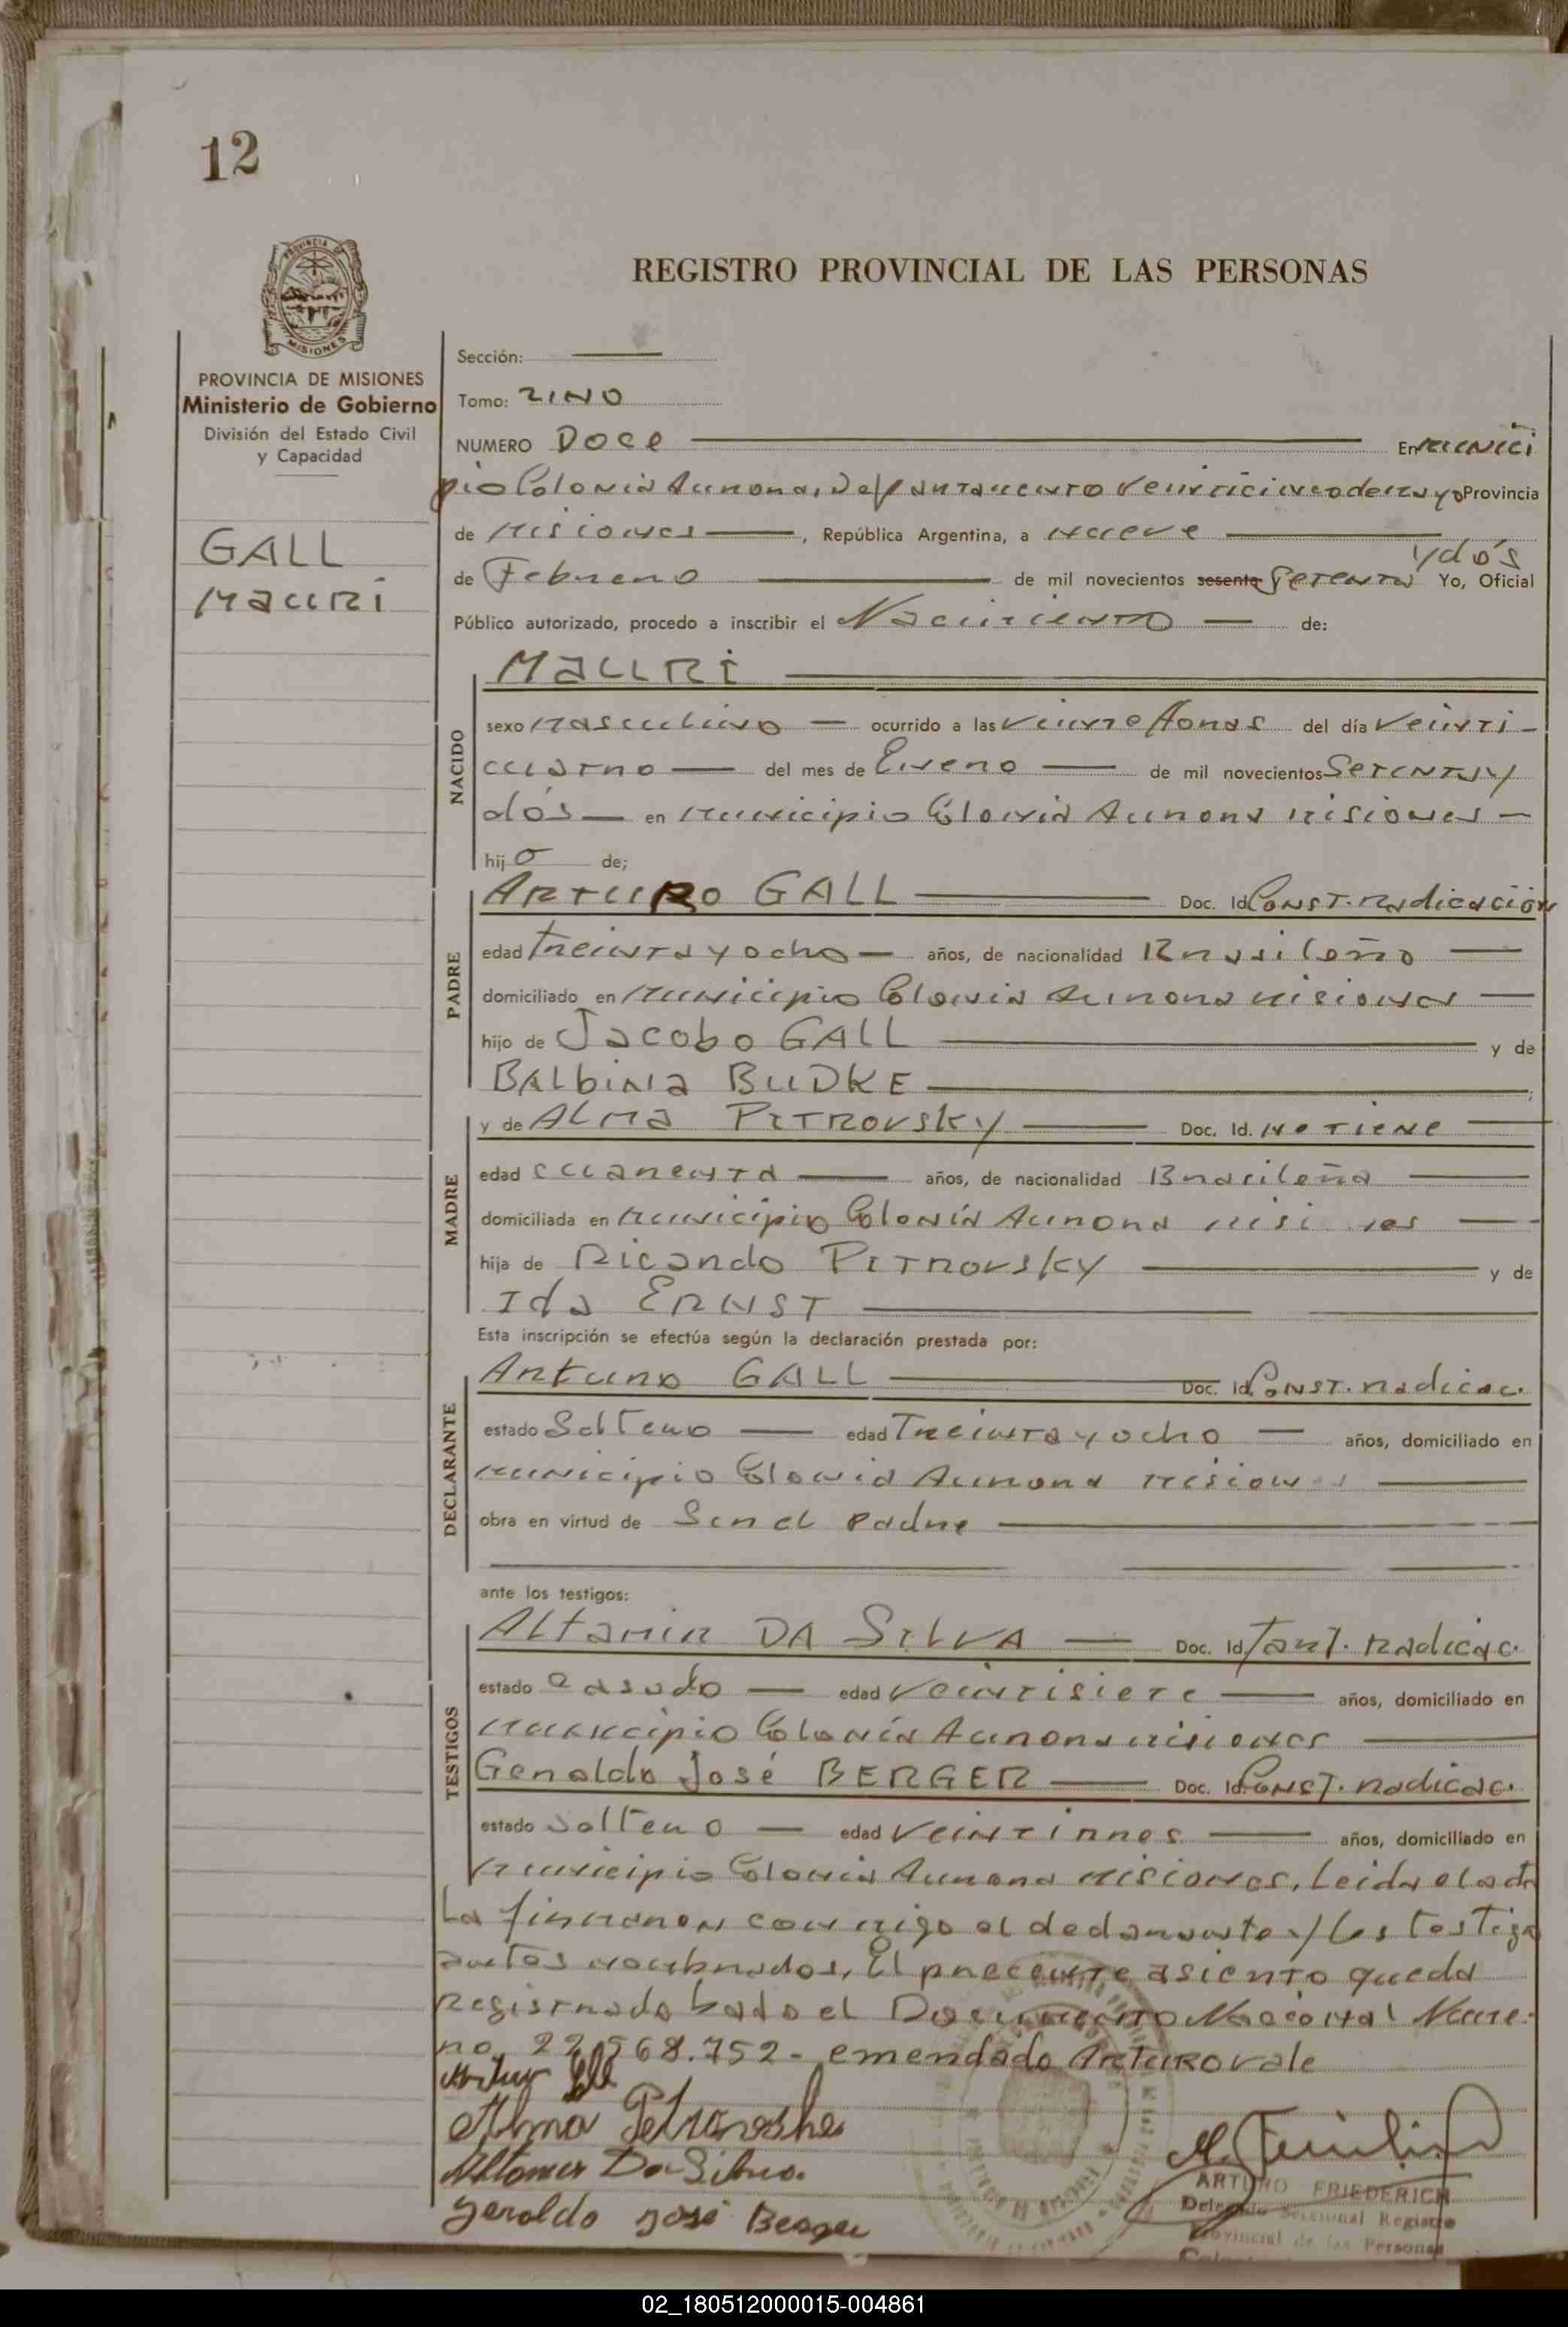 12
REGISTRO PROVINCIAL DE LAS PERSONAS
PROVINCIA DE
MISIONES
PROVINCIA DE MISIONES
Ministerio de Gobierno
División del Estado Civil
y Capacidad
GALL
Mauri
Sección:
Tomo: UNO
NUMERO Doce En Munici
pio Colonia Aurora, Departamento Veinticinco de Mayo Provincia
de Misiones, República Argentina, a Nueve
y dós
de Febrero de mil novecientos sesenta Setenta Yo, Oficial
Público autorizado, procedo a inscribir el Nacimiento de:
NACIDO
Mauri
sexo Masculino ocurrido a las Veinte Horas del día Veinti
cuatro del mes de Enero de mil novecientos Setenta y
dós en Municipio Colonia Aurora Misiones
hijo de;
PADRE
Arturo GALL Doc. Id. Const. Radicación
edad treinta y ocho años, de nacionalidad Brasileño
domiciliado en Municipio Colonia Aurora Misiones
hijo de Jacobo GALL y de
Balbina BUDKE
MADRE
y de Alma PETROVSKY Doc. Id. No Tiene
edad cuarenta años, de nacionalidad Brasileña
domiciliada en Municipio Colonia Aurora Misiones
hija de Ricardo PETROVSKY y de
Ida ERNST
Esta inscripción se efectúa según la declaración prestada por:
DECLARANTE
Arturo GALL Doc. Id. Const. Radicac.
estado Soltero edad Treinta y ocho años, domiciliado en
Municipio Colonia Aurora Misiones
obra en virtud de Ser el Padre
ante los testigos:
TESTIGOS
Altamir DA SILVA Doc. Id. Tarj. Radicac.
estado Casado edad Veintisiete años, domiciliado en
Municipio Colonia Aurora Misiones
Geraldo José BERGER Doc. Id. Const. Radicac.
estado Soltero edad Veintitres años, domiciliado en
Municipio Colonia Aurora Misiones, Leida el acta
La firmaron conmigo el declarante y los testigo
antes nombrados, El presente asiento queda
Registrado bado el Documento Nacional Nume-
ro. 22.568.752 - emendado Arturo vale
Artur Gall
Alma
Altamir Da Silva.
Geraldo José Berger
ARTURO FRIEDERICH
Delegado Seccional Registro
Provincial de las Personas
02_180512000015-004861